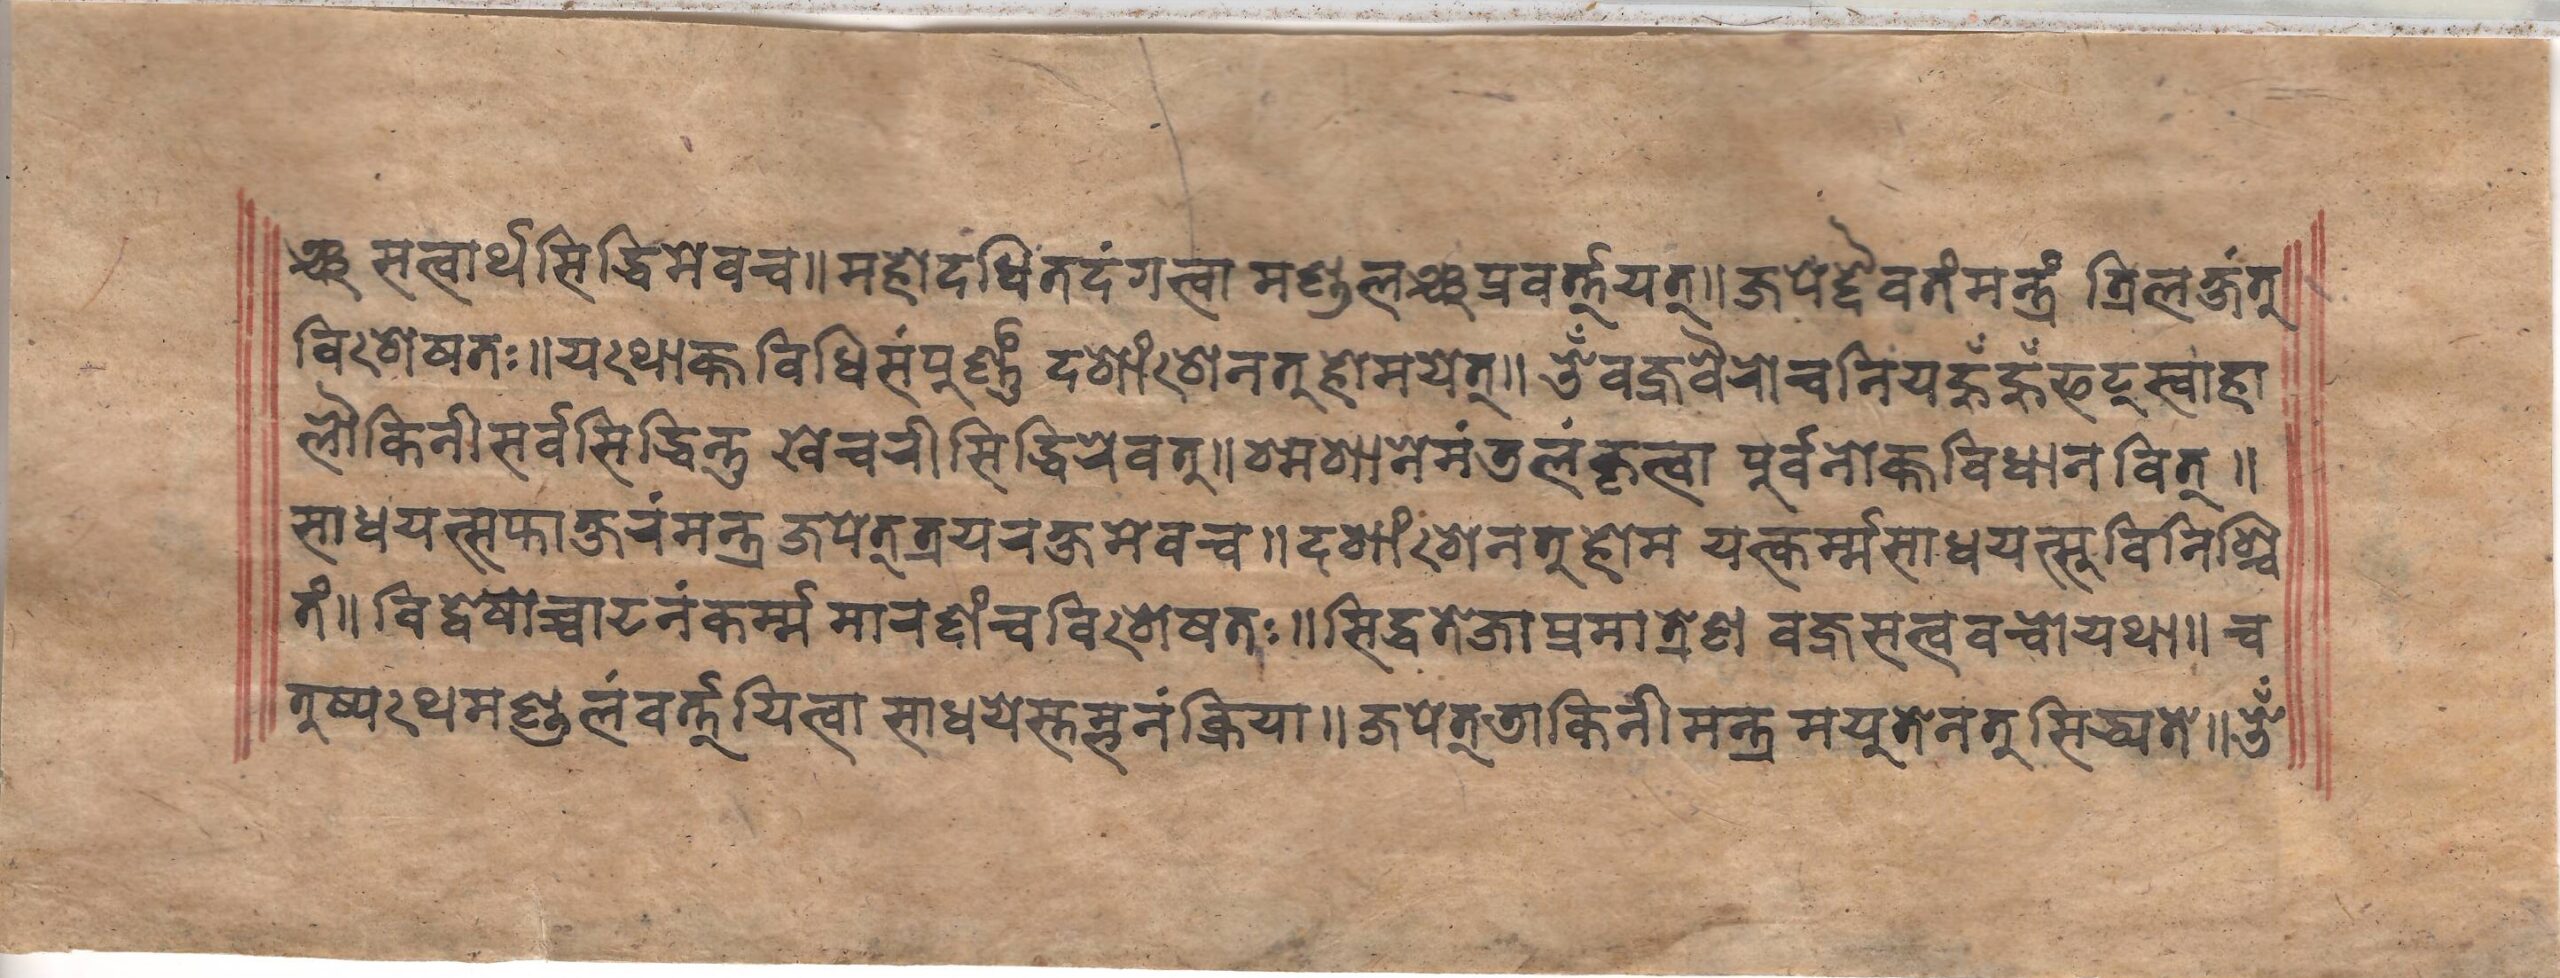 ञ्च सत्वार्थसिद्धिमेवच॥ महोदधिंतदंगत्वा मण्डलञ्चप्रवर्त्तयत्॥ जपेद्दैवतंमन्त्रं त्रिलक्षंतु
विशेषतः॥ यथोक्तविधिसंपुर्ण्णं दशांशेनतुहोमयेत्॥ ॐ वज्रवैरोचनियहूँहूँफट्स्वाहा
लौकिनीसर्वसिद्धिन्तु खेचरीसिद्धिरेवतु॥ श्मशानेमंडलंकृत्वा पुर्वनोक्तविधानवित्॥
साधयत्सप्ताक्षरंमन्त्र जपेत्त्रयरक्षमेवच॥ दशांशेनतुहोम यत्कर्म्मसाधयत्सुविनिश्चि
तं॥ विद्वेषोच्चाटनंकर्म्म मारणंचविशेषतः॥ सिद्धतेजाप्रमात्रेण वज्रसत्ववचोयथा॥ च
तुष्पथेमण्डलंवर्त्तयित्वा साधयेस्तम्भनंक्रिया॥ जपेत्डाकिनीमन्त्र मयुतेनतुसिद्ध्यते॥ ॐ